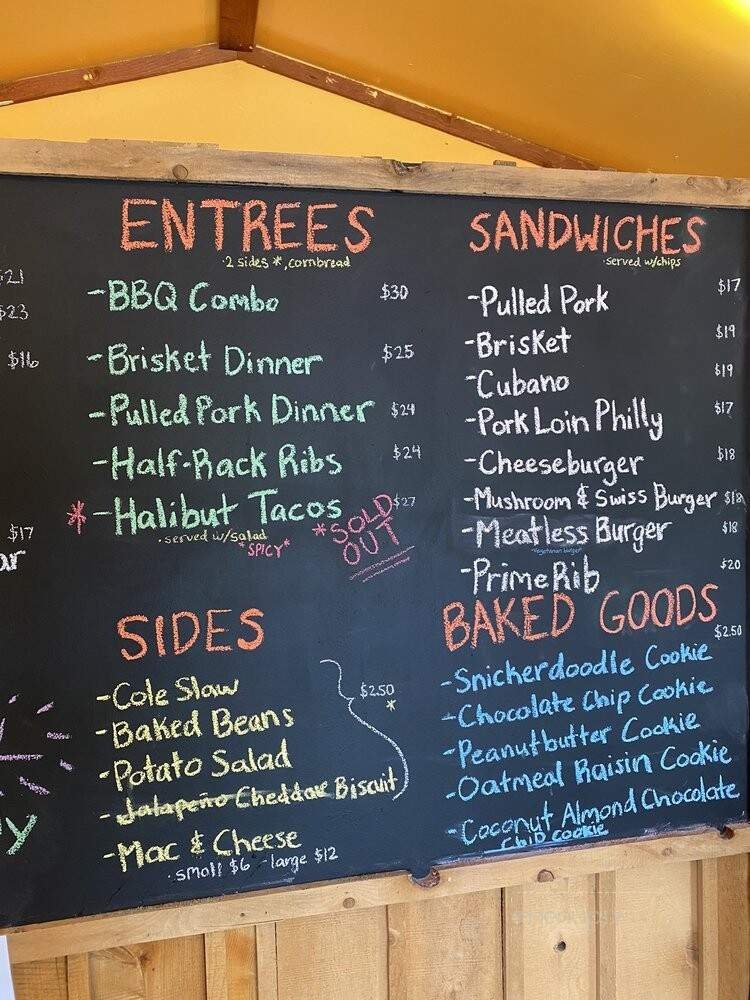 $21
$23
$16
$17
ar
y
ENTREES
·2 sides *, cornbread
-BBQ Combo $30
-Brisket Dinner $25
-Pulled Pork Dinner $24
-Half-Rack Ribs $24
*-Halibut Tacos $27
·served w/salad
*SPICY*
*SOLD
OUT
SIDES
-Cole Slaw
-Baked Beans $2.50
*
-Potato Salad
-Jalapeño Cheddar Biscuit
-Mac & Cheese
·small $6 -large $12
SANDWICHES
·served w/chips
-Pulled Pork $17
-Brisket $19
-Cubano $19
-Pork Loin Philly $17
-Cheeseburger $18
-Mushroom & Swiss Burger $18
-Meatless Burger $18
*vegetarian burger*
-Prime Rib $20
BAKED GOODS
$2.50
-Snickerdoodle Cookie
-Chocolate Chip Cookie
-Peanutbutter Cookie
-Oatmeal Raisin Cookie
-Coconut Almond Chocolate
Chip Cookie